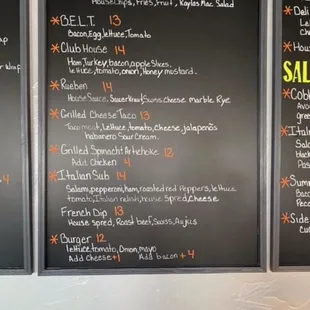 House Chips, Fries, Fruit, Kaylas Mac Salad
* B.E.L.T. 13
Bacon, Egg, lettuce, Tomato
* Club House 14
Ham, Turkey, bacon, apple slices,
lettuce, tomato, onion, Honey mustard.
* Rueben 14
House Sauce, Sauerkraut, Swiss Cheese marble Rye
* Grilled Cheese Taco 13
Taco meat, lettuce, tomato, Cheese, jalapeños
habanero Sour Cream.
* Grilled Spinach + Artichoke 12
Add Chicken 4
* Italian Sub 14
Salami, pepperoni, ham, roasted red Peppers, lettuce
tomato, Italian relish, house Spred, Cheese
French Dip 13
House spred, Roast beef, Swiss, Aujus
* Burger 12
lettuce, tomato, Onion, mayo
Add Cheese +1 Add bacon + 4
wrap
4
* Deli
Let
Che
* Hous
SAL
* Cobb
Avo
gree
* Italia
Sala
black
Pas
* Summ
Baco
Peca
* Side
Cu